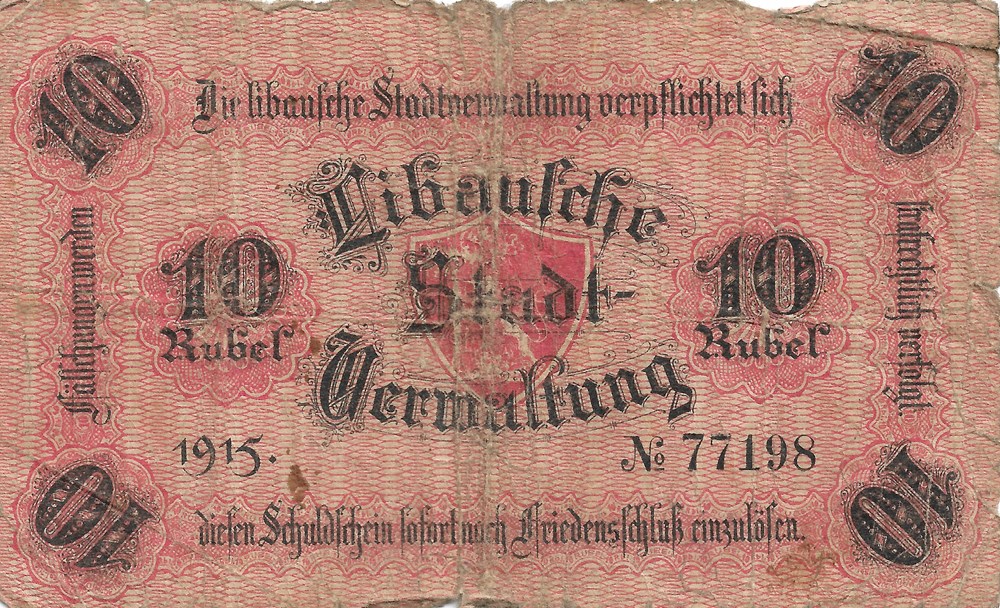 10
10
Die libausche Stadtverwaltung verpflichtet sich
Libausche
Stadt-
Verwaltung
10
Rubel
10
Rubel
Fälschungen werden
strafrechtlich verfolgt.
1915.
No 77198
diesen Schuldschein sofort nach Friedensschluß einzulösen.
10
10